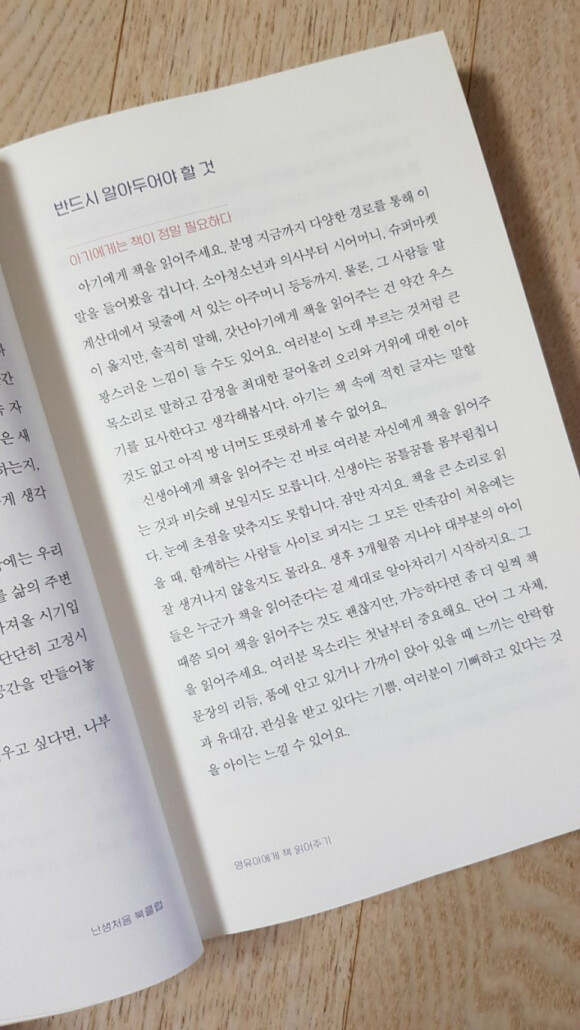 간
자
은 새
하는지,
게 생각
상에는 우리
를 삶의 주변
가져올 시기입
단단히 고정시
공간을 만들어놓
우고 싶다면, 나부
난생처음 북클럽
반드시 알아두어야 할 것
아기에게는 책이 정말 필요하다
아기에게 책을 읽어주세요. 분명 지금까지 다양한 경로를 통해 이
말을 들어봤을 겁니다. 소아청소년과 의사부터 시어머니, 슈퍼마켓
계산대에서 뒷줄에 서 있는 아주머니 등등까지. 물론, 그 사람들 말
이 옳지만, 솔직히 말해, 갓난아기에게 책을 읽어주는 건 약간 우스
꽝스러운 느낌이 들 수도 있어요. 여러분이 노래 부르는 것처럼 큰
목소리로 말하고 감정을 최대한 끌어올려 오리와 거위에 대한 이야
기를 묘사한다고 생각해봅시다. 아기는 책 속에 적힌 글자는 말할
것도 없고 아직 방 너머도 또렷하게 볼 수 없어요.
신생아에게 책을 읽어주는 건 바로 여러분 자신에게 책을 읽어주
는 것과 비슷해 보일지도 모릅니다. 신생아는 꿈틀꿈틀 몸부림칩니
다. 눈에 초점을 맞추지도 못합니다. 잠만 자지요. 책을 큰 소리로 읽
을 때, 함께하는 사람들 사이로 퍼지는 그 모든 만족감이 처음에는
잘 생겨나지 않을지도 몰라요. 생후 3개월쯤 지나야 대부분의 아이
들은 누군가 책을 읽어준다는 걸 제대로 알아차리기 시작하지요. 그
때쯤 되어 책을 읽어주는 것도 괜찮지만, 가능하다면 좀 더 일찍 책
을 읽어주세요. 여러분 목소리는 첫날부터 중요해요. 단어 그 자체,
문장의 리듬, 품에 안고 있거나 가까이 앉아 있을 때 느끼는 안락함
과 유대감, 관심을 받고 있다는 기쁨, 여러분이 기뻐하고 있다는 것
을 아이는 느낄 수 있어요.
영유아에게 책 읽어주기